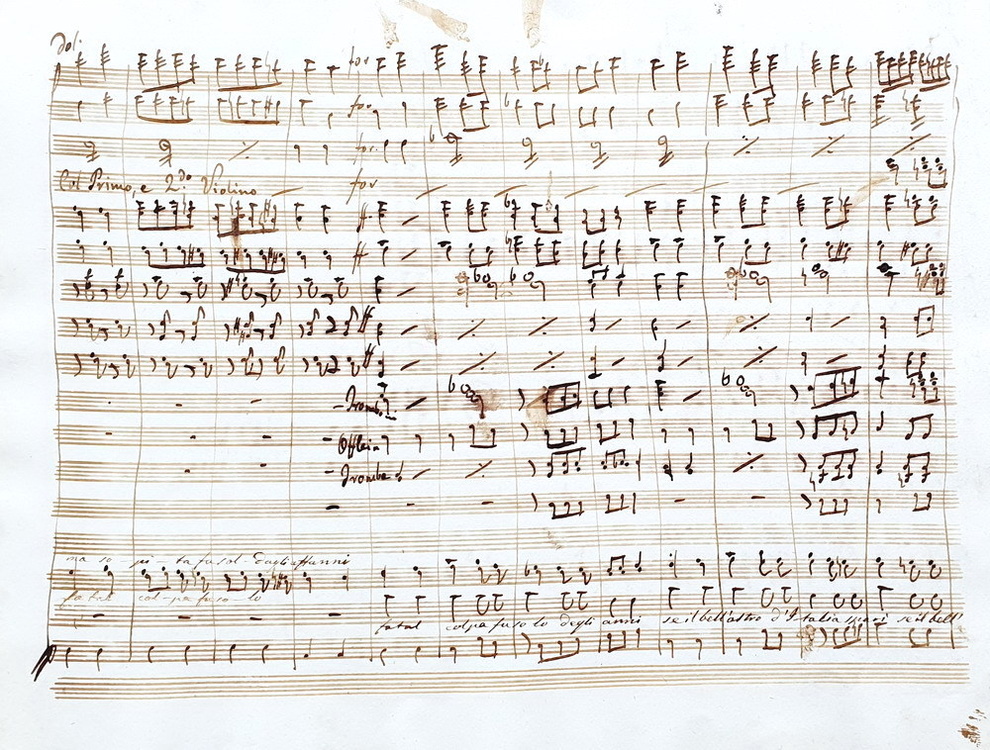 dol:
for
for
for
Col Primo, e 2.do Violino
for
Trombe
Tromba
ma so - pi - ta fu sol - dagli affanni
fatal col - pa fu so - lo
fatal colpa fu solo degli anni se il bell'astro d'Italia spari se il bell'